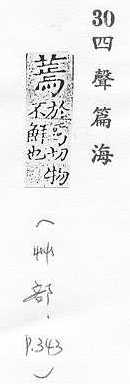 30四聲篇海
蔫
於切物
不鮮也
(艸部, p.343)